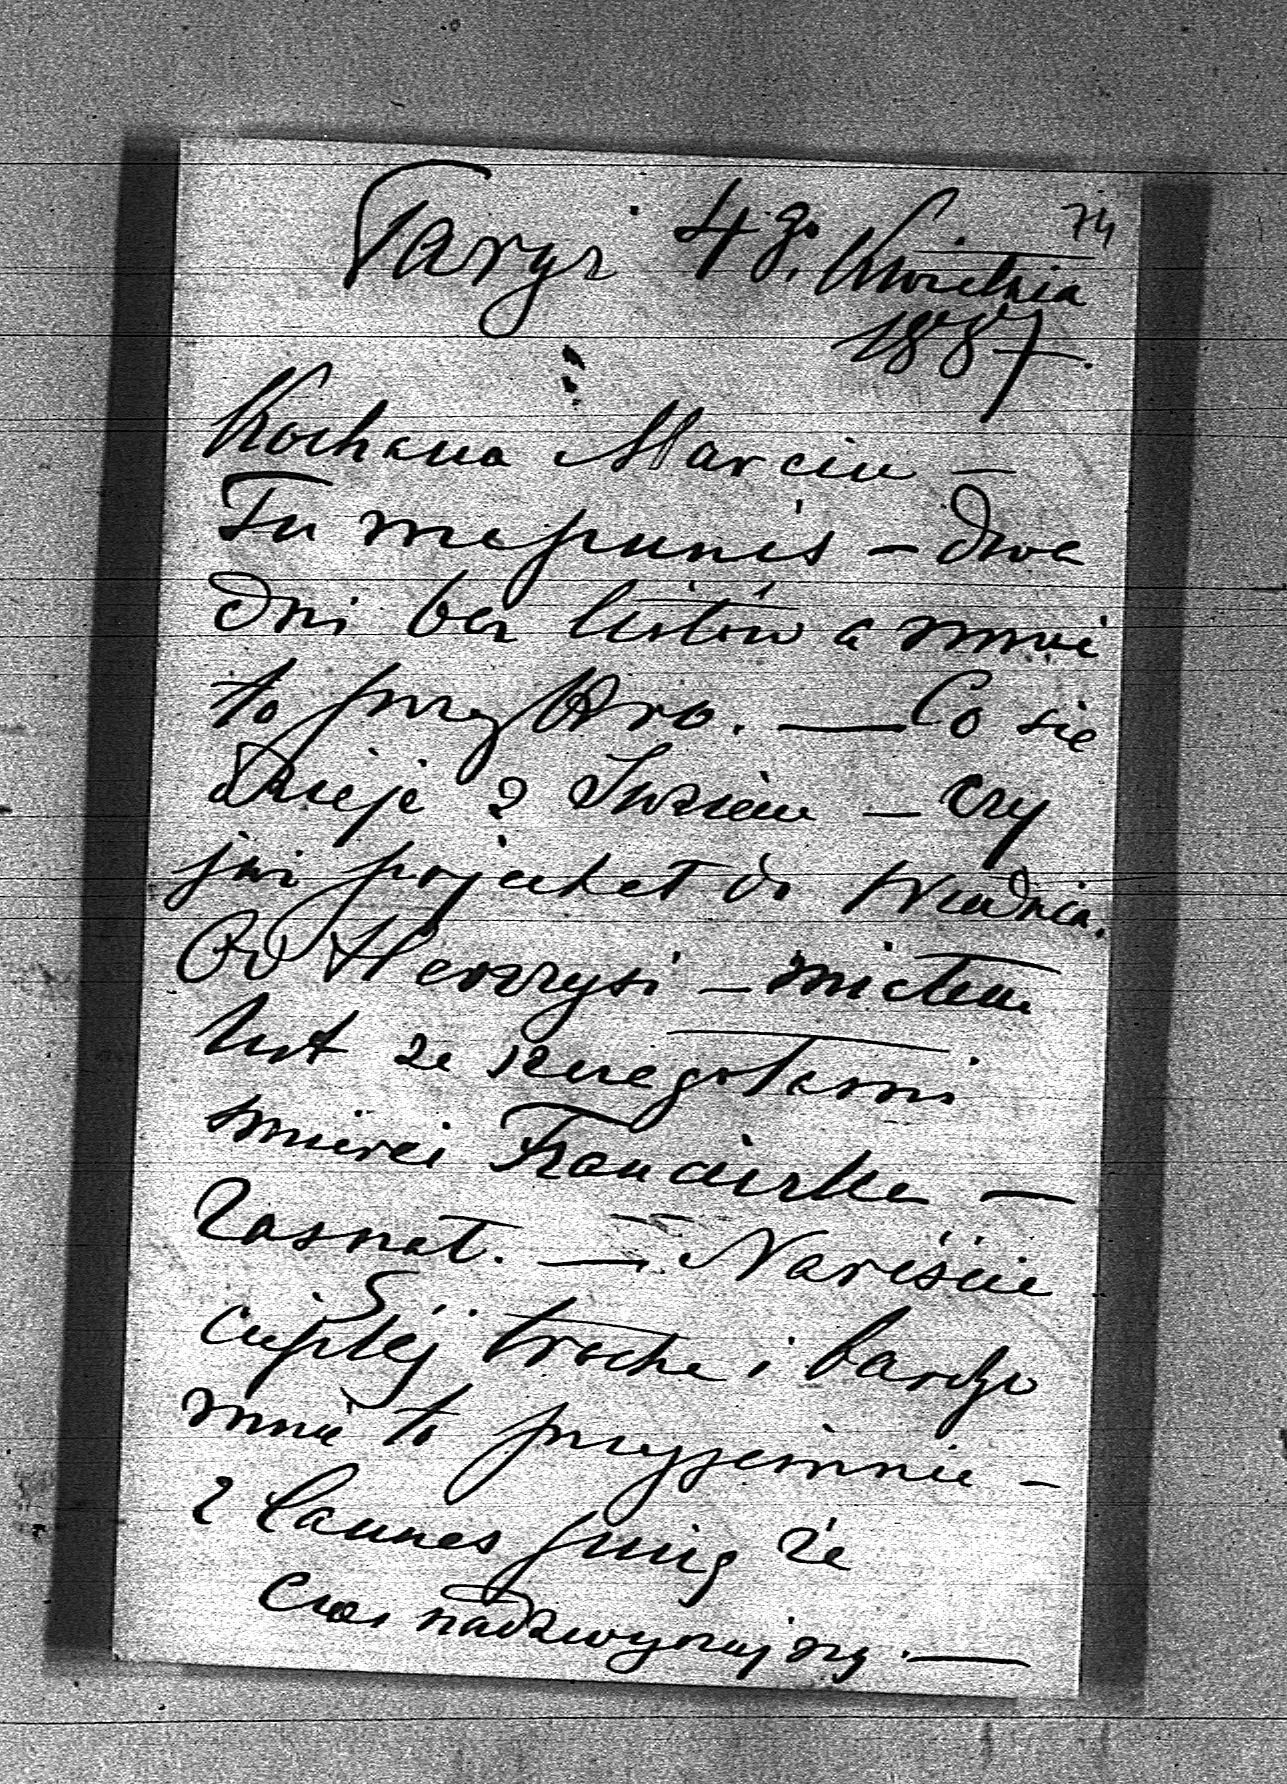 74
Paryż 4go. Kwietnia
1887.
Kochana Marciu —
Tu nie piszesz — dwa
dni bez listów a mnie
to przykro. — Co się
dzieje z Józiem — czy
już pojechał do Wiednia.
Od Henrysi — miałem
list ze szczegółami
śmierci Franciszka —
Zasnął. — Nareście
cieplej trochę i bardzo
mnie to przyjemnie —
z Cannes piszą że
czas nadzwyczajny. —